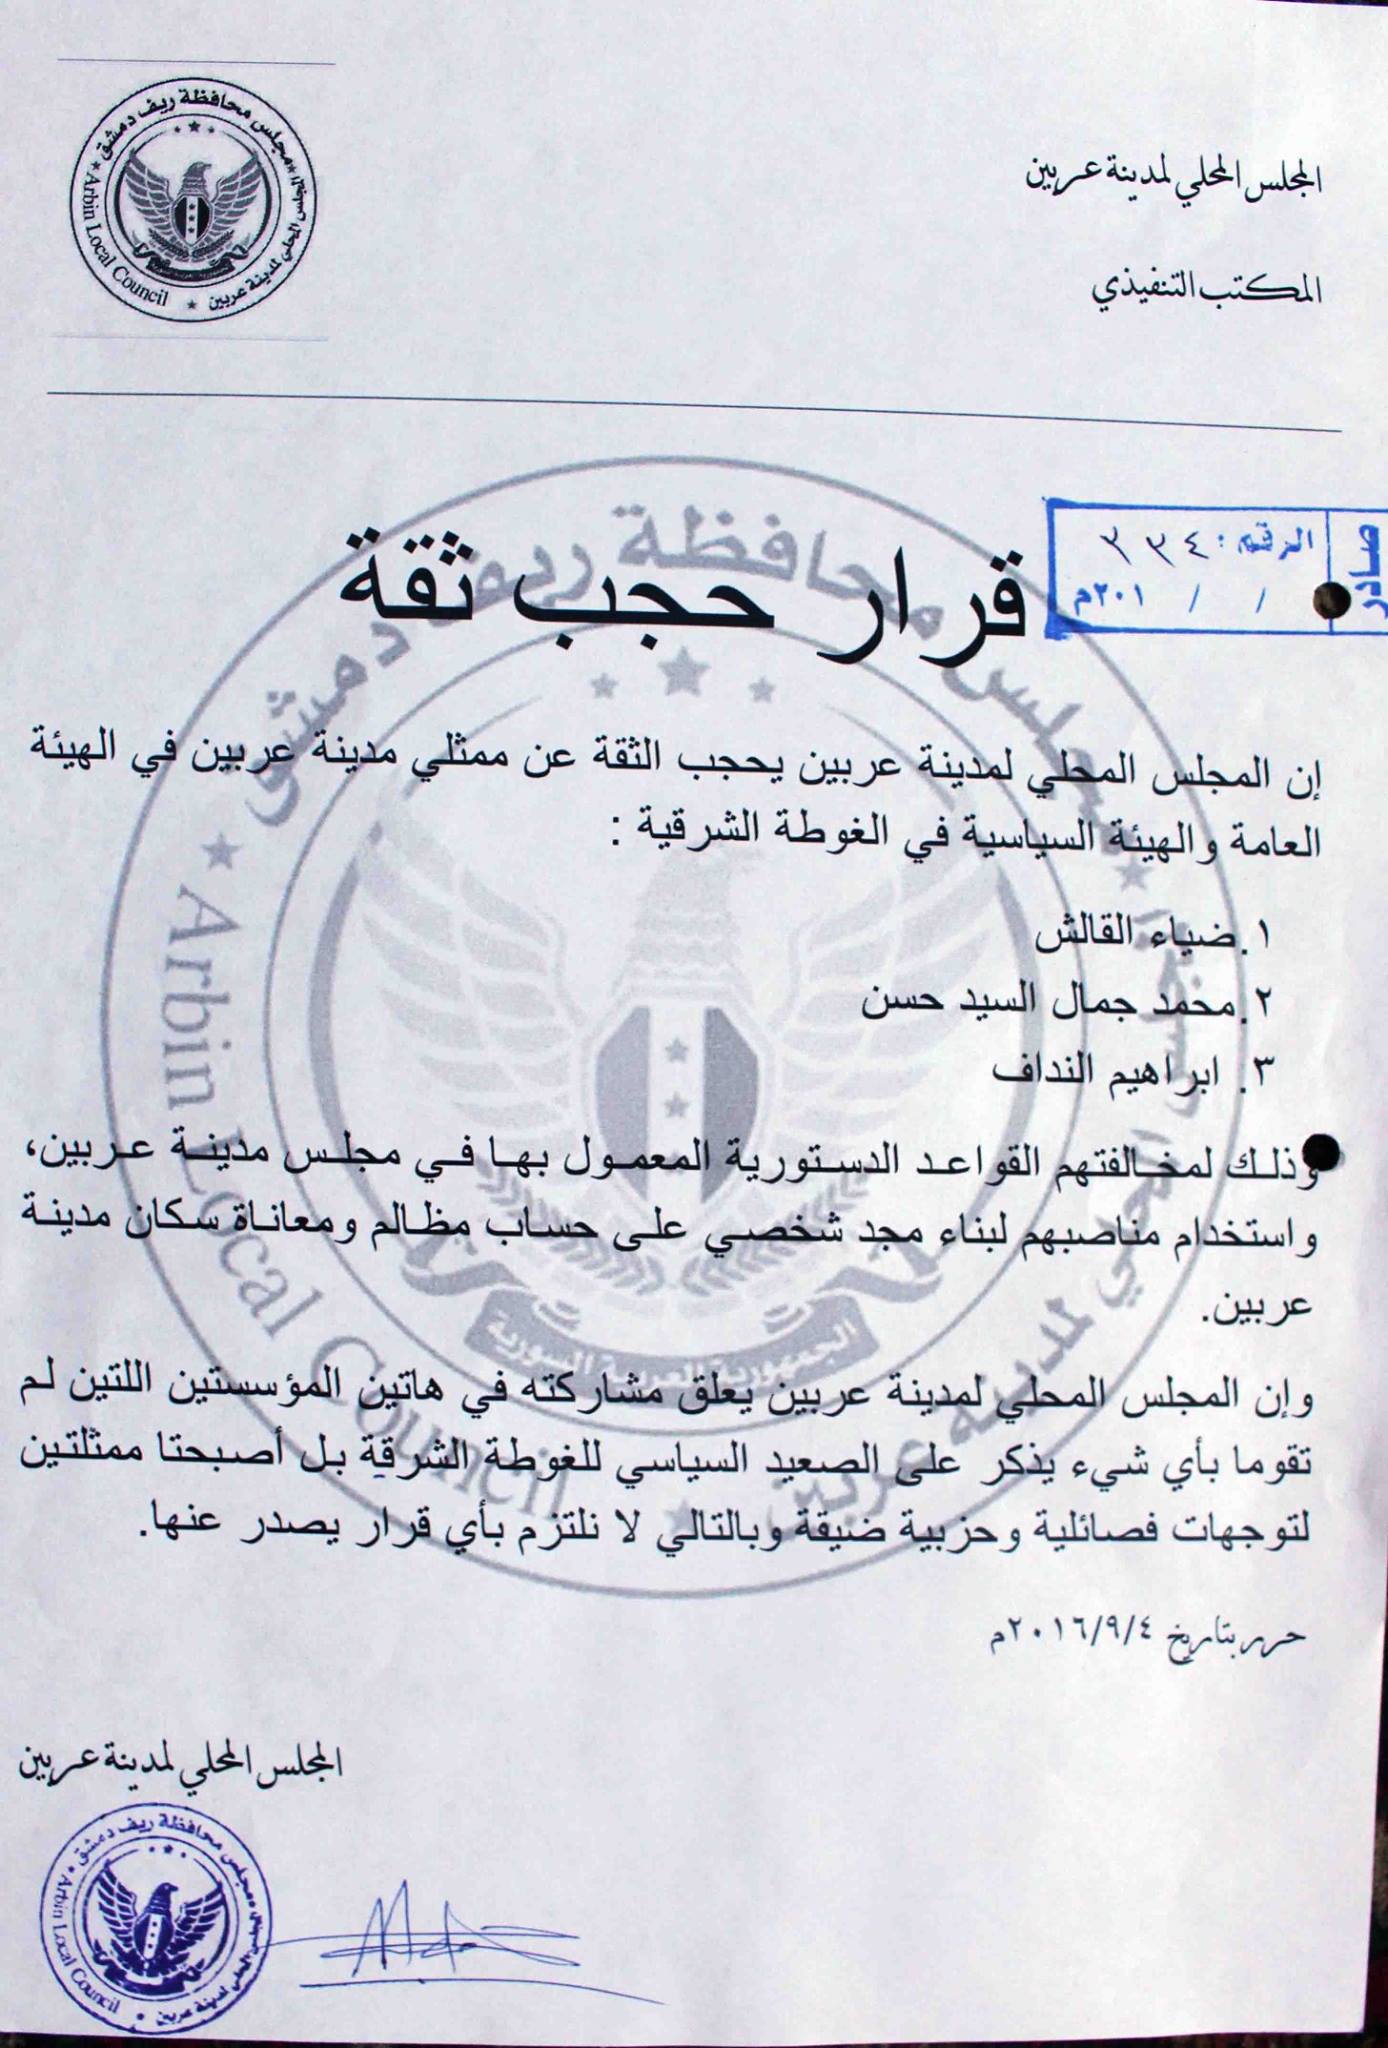 مجلس محافظة ريف دمشق
المجلس المحلي لمدينة عربين
Arbin Local Council
المجلس المحلي لمدينة عربين
المكتب التنفيذي
صادر
الرقم: ٣٣٤
/ / ٢٠١م
قرار حجب ثقة
إن المجلس المحلي لمدينة عربين يحجب الثقة عن ممثلي مدينة عربين في الهيئة
العامة والهيئة السياسية في الغوطة الشرقية :
١.ضياء القالش
٢.محمد جمال السيد حسن
٣. ابراهيم النداف
وذلك لمخالفتهم القواعد الدستورية المعمول بها في مجلس مدينة عربين،
واستخدام مناصبهم لبناء مجد شخصي على حساب مظالم ومعاناة سكان مدينة
عربين.
وإن المجلس المحلي لمدينة عربين يعلق مشاركته في هاتين المؤسستين اللتين لم
تقوما بأي شيء يذكر على الصعيد السياسي للغوطة الشرقة بل أصبحتا ممثلتين
لتوجهات فصائلية وحزبية ضيقة وبالتالي لا نلتزم بأي قرار يصدر عنها.
حرر بتاريخ ٢٠١٦/٩/٤م
المجلس المحلي لمدينة عربين
مجلس محافظة ريف دمشق
المجلس المحلي لمدينة عربين
Arbin Local Council
مجلس محافظة ريف دمشق
المجلس المحلي لمدينة عربين
Arbin Local Council
الجمهورية العربية السورية